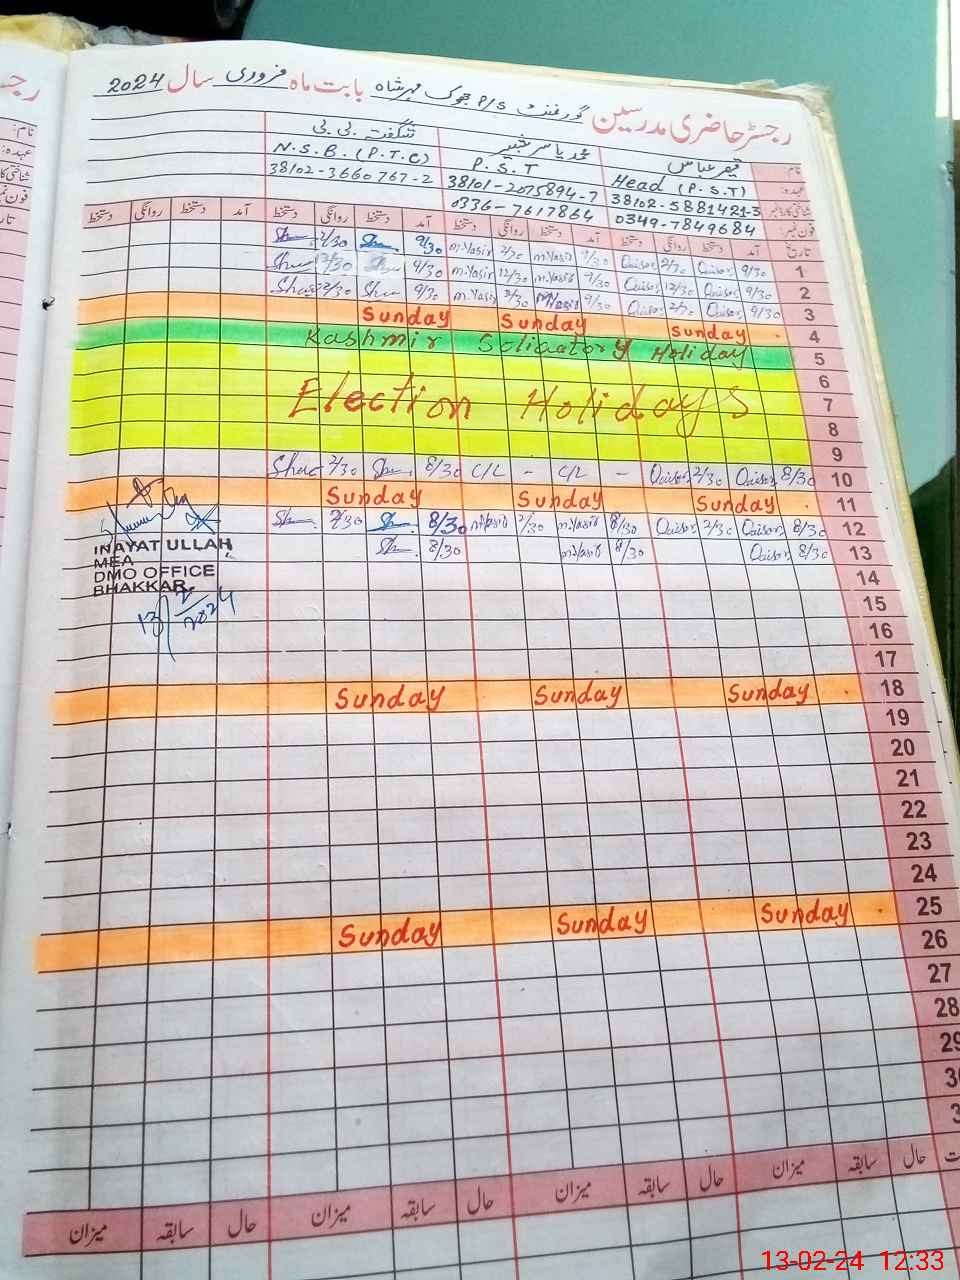 رجسٹر حاضری مدرسین گورنمنٹ P/S جھوک مہر شاہ بابت ماہ فروری سال 2024
نام: قیصر عباس محمد یاسر شبیر شگفتہ بی بی
عہدہ: Head (P.S.T) P.S.T N.S.B. (P.T.C)
شناختی کارڈ نمبر 38102-5881421-3 38101-2075894-7 38102-3660767-2
فون نمبر: 0349-7849684 0336-7617864
تاریخ آمد دستخط روانگی دستخط آمد دستخط روانگی دستخط آمد دستخط روانگی دستخط آمد دستخط روانگی دستخط
1 9/30 Qaisar 2/30 Qaisar 9/30 M.Yasir 2/30 M.Yasir 9/30 2/30
2 9/30 Qaisar 12/30 Qaisar 9/30 M.Yasir 12/30 M.Yasir 9/30 12/30
3 9/30 Qaisar 2/30 Qaisar 9/30 M.Yasir 2/30 M.Yasir 9/30 2/30
4 Sunday Sunday Sunday
5 Kashmir Soliactory Holiday
6
7 Election Holidays
8
9
10 8/30 Qaisar 2/30 Qaisar - C/L - C/L 8/30 2/30
11 Sunday Sunday Sunday
12 8/30 Qaisar 2/30 Qaisar 8/30 M.Yasir 2/30 M.Yasir 8/30 2/30
13 8/30 Qaisar 8/30 M.Yasir 8/30
INAYAT ULLAH
MEA
DMO OFFICE
BHAKKAR
13/2/2024
14
15
16
17
18 Sunday Sunday Sunday
19
20
21
22
23
24
25 Sunday Sunday Sunday
26
27
28
29
حال سابقہ میزان حال سابقہ میزان حال سابقہ میزان حال سابقہ میزان
13-02-24 12:33